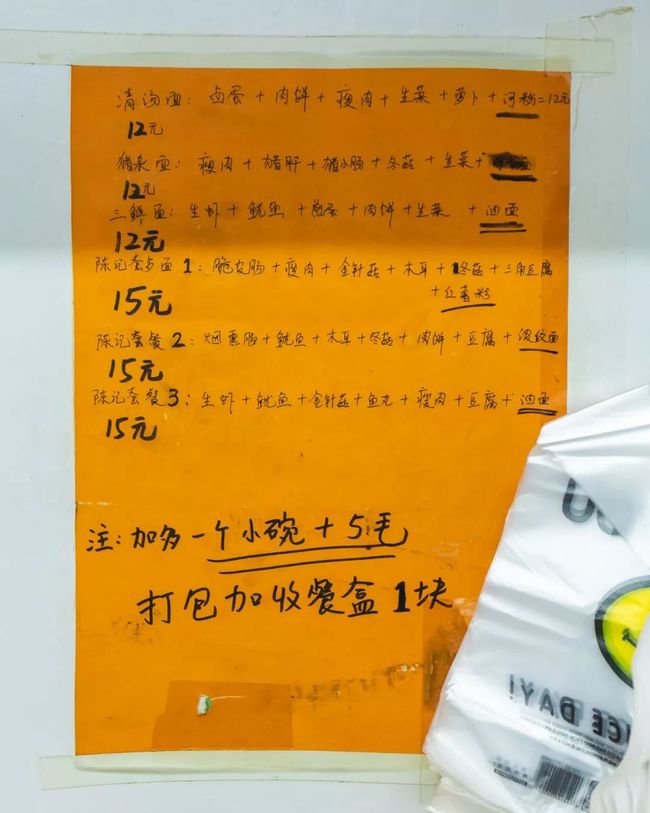 清汤面: 卤蛋 + 肉饼 + 瘦肉 + 生菜 + 萝卜 + 河粉=12元
12元
猪杂面: 瘦肉 + 猪肝 + 猪小肠 + 冬菇 + 生菜 +
12元
三鲜面: 生虾 + 鱿鱼 + 煎蛋 + 肉饼 + 生菜 + 油面
12元
陈记套 面 1: 脆皮肠 + 瘦肉 + 金针菇 + 木耳 + 冬菇 + 三角豆腐
+ 红薯粉
15元
陈记套餐 2: 烟熏肠 + 鱿鱼 + 木耳 + 冬菇 + 肉饼 + 豆腐 + 波纹面
15元
陈记套餐 3: 生虾 + 鱿鱼 + 金针菇 + 鱼丸 + 瘦肉 + 豆腐 + 油面
15元
注: 加多一个小碗 + 5毛
打包加收餐盒 1块
ICE DAY!